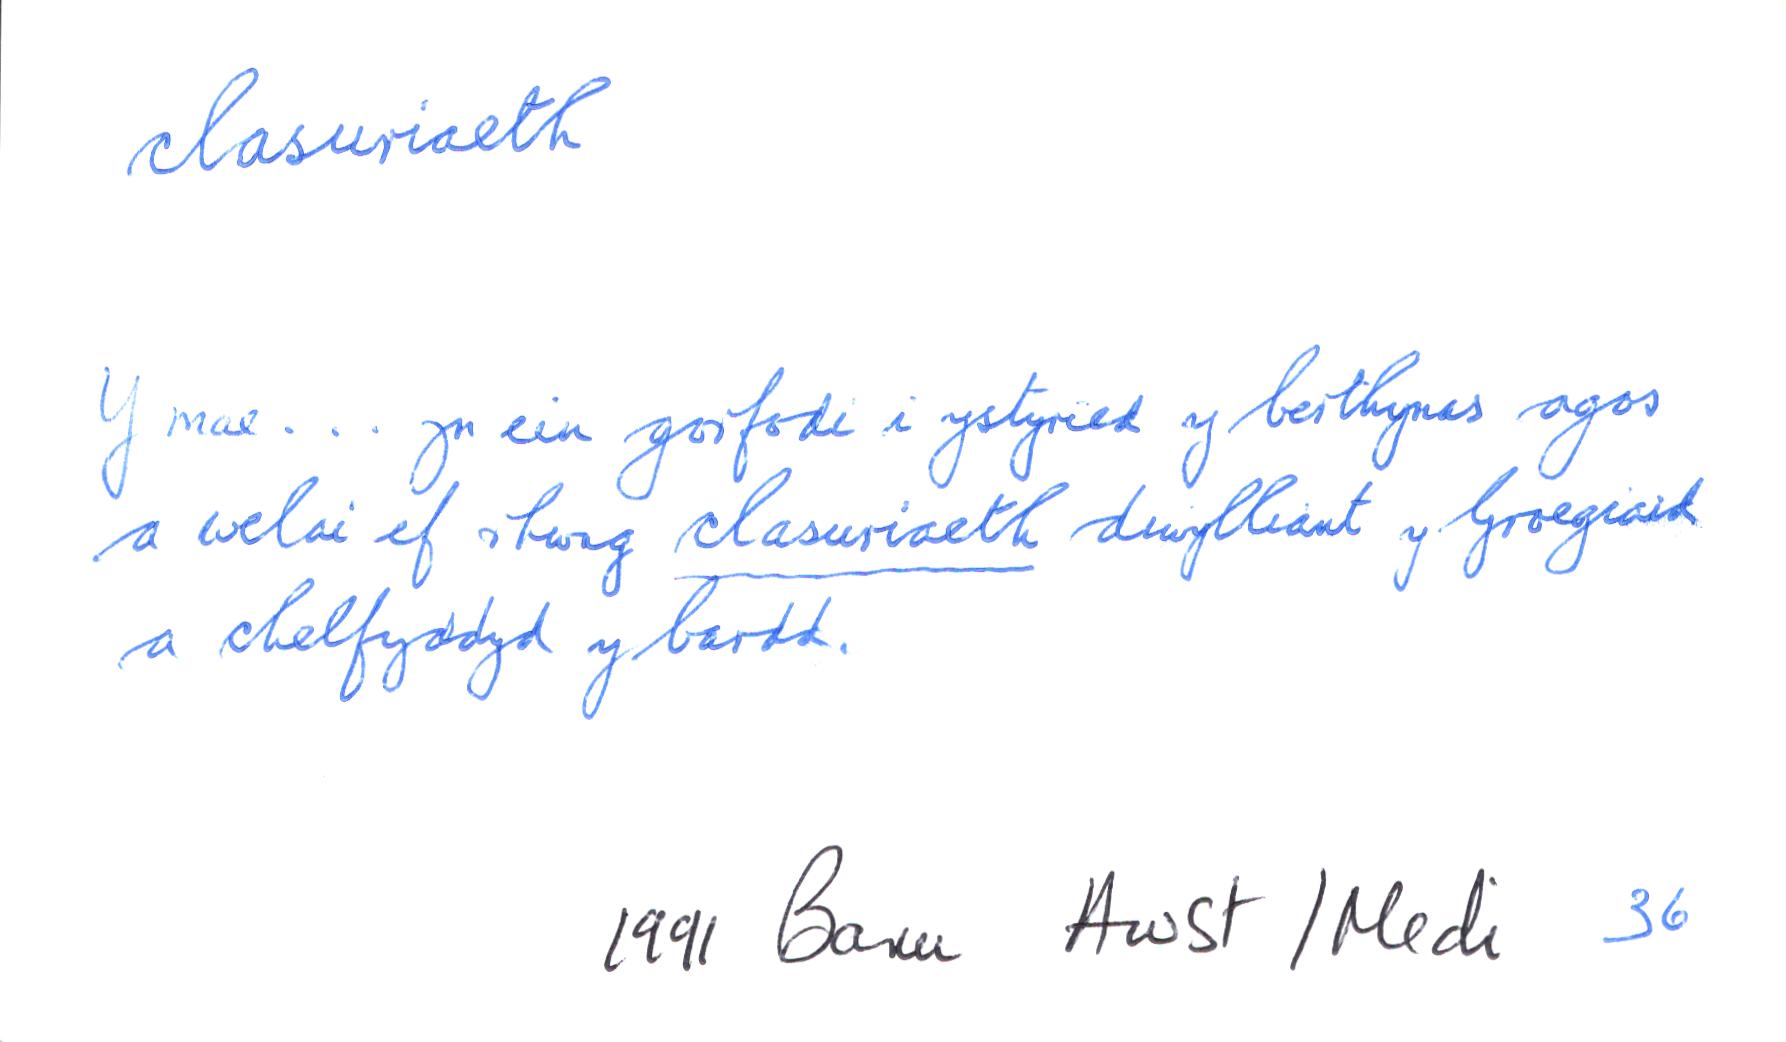 clasuriaeth
Y mae . . . yn ein gorfodi i ystyried y berthynas agos
a welai ef rhwng clasuriaeth diwylliant y Groegiaid
a chelfyddyd y bardd.
1991 Barn Awst / Medi 36